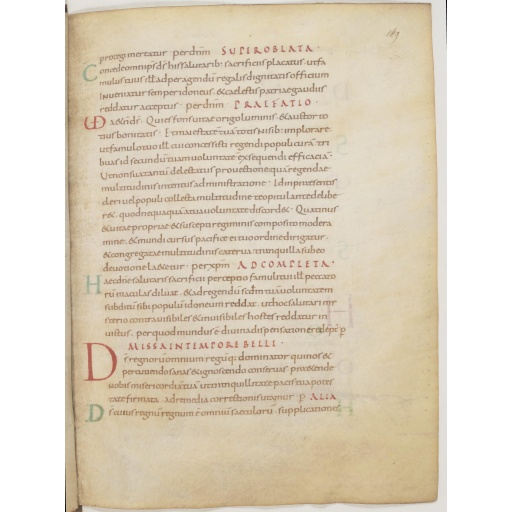 169
protegi mertatur · per dnm̄ SUPER OBLATA ·
Concede omnips ds̄ his salutarib; sacrificiis placatus · ut fa
mulus tuus ill ad peragendū regalis dignitatis officium
inueniatur semper idoneus · & caelesti patriae gaudiis
reddatur acceptus · per dnm̄ PRAEFATIO ·
origo luminis · & auctor to
tius bonitatis · Et maiestatē tuā totis nisib; implorare
ut famulo tuo ill · cui concessisti regendi populi curā tri
buas id secundū tuam uoluntatē exsequendi efficaciā ·
Ut non
multitudinis intentus administratione ·
populi collecta multitudine
r& · quod nequaquā a tua uoluntate discord& · Quatinus
& uitae propriae & suscepti regiminis composito modera
mine · & mundi cursus pacifice et tuo ordine dirigatur ·
& congregatae multitudinis caterua tranquilla subeo
deuotione la&etur · per xpm̄ AD COMPLETA ·
Haec dnē salutaris sacrificii perceptio famuli tui ill peccato
rū maculas diluat · & ad regendū scdm̄ tuā uoluntatem
subditū sibi populū idoneum reddat · ut hoc salutari my
sterio contra uisibiles & inuisibiles hostes reddatur in
uictus · per quod mundus ē diuina dispensatione
MISSA IN TEMPORE BELLI ·
Ds̄ regnorū omnium regūq; dominator · qui nos &
percutiendo sanas & ignoscendo conseruas · pr&ende
nobis misericordiā tuā · ut tranquillitate pacis tua potes
tate firmata · ad remedia correctionis utamur · p ALIA
Ds̄ cuius regnū regnum ē omniū saeculorū · supplicationes